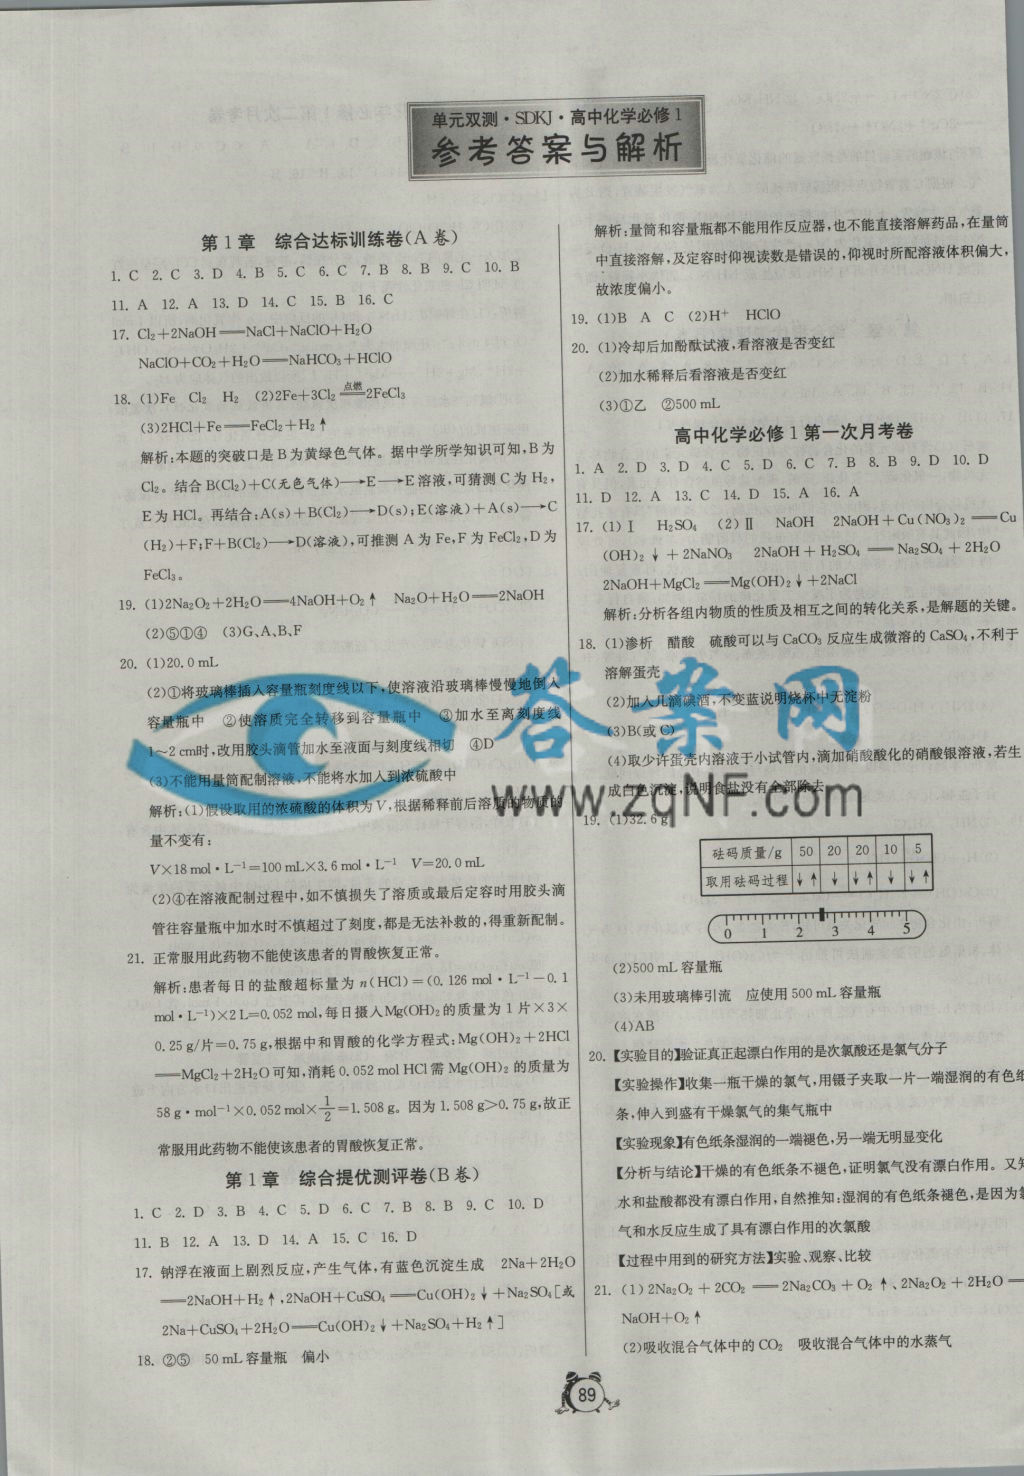 单元双测·SDKJ·高中化学必修1
参考答案与解析
第1章 综合达标训练卷(A卷)
1. C 2. C 3. D 4. B 5. C 6. C 7. B 8. B 9. C 10. B
11. A 12. A 13. D 14. C 15. B 16. C
17. Cl₂+2NaOH══NaCl+NaClO+H₂O
NaClO+CO₂+H₂O══NaHCO₃+HClO
18. (1)Fe Cl₂ H₂ (2)2Fe+3Cl₂ 点燃══ 2FeCl₃
(3)2HCl+Fe══FeCl₂+H₂↑
解析:本题的突破口是B为黄绿色气体。据中学所学知识可知,B为
Cl₂。结合B(Cl₂)+C(无色气体)⟶E⟶E溶液,可猜测C为H₂,
E为HCl。再结合:A(s)+B(Cl₂)⟶D(s);E(溶液)+A(s)⟶C
(H₂)+F;F+B(Cl₂)⟶D(溶液),可推测A为Fe,F为FeCl₂,D为
FeCl₃。
19. (1)2Na₂O₂+2H₂O══4NaOH+O₂↑ Na₂O+H₂O══2NaOH
(2)⑤①④ (3)G、A、B、F
20. (1)20.0 mL
(2)①将玻璃棒插入容量瓶刻度线以下,使溶液沿玻璃棒慢慢地倒入
容量瓶中 ②使溶质完全转移到容量瓶中 ③加水至离刻度线
1～2 cm时,改用胶头滴管加水至液面与刻度线相切 ④D
(3)不能用量筒配制溶液,不能将水加入到浓硫酸中
解析:(1)假设取用的浓硫酸的体积为V,根据稀释前后溶质的物质的
量不变有:
V×18 mol·L⁻¹=100 mL×3.6 mol·L⁻¹ V=20.0 mL
(2)④在溶液配制过程中,如不慎损失了溶质或最后定容时用胶头滴
管往容量瓶中加水时不慎超过了刻度,都是无法补救的,得重新配制。
21. 正常服用此药物不能使该患者的胃酸恢复正常。
解析:患者每日的盐酸超标量为n(HCl)=(0.126 mol·L⁻¹-0.1
mol·L⁻¹)×2 L=0.052 mol,每日摄入Mg(OH)₂的质量为1片×3×
0.25 g/片=0.75 g,根据中和胃酸的化学方程式:Mg(OH)₂+2HCl
══MgCl₂+2H₂O可知,消耗0.052 mol HCl需Mg(OH)₂的质量为
58 g·mol⁻¹×0.052 mol×1/2=1.508 g。因为1.508 g>0.75 g,故正
常服用此药物不能使该患者的胃酸恢复正常。
第1章 综合提优测评卷(B卷)
1. C 2. D 3. B 4. C 5. D 6. C 7. B 8. B 9. C 10. D
11. B 12. A 13. D 14. A 15. C 16. D
17. 钠浮在液面上剧烈反应,产生气体,有蓝色沉淀生成 2Na+2H₂O
══2NaOH+H₂↑,2NaOH+CuSO₄══Cu(OH)₂↓+Na₂SO₄[或
2Na+CuSO₄+2H₂O══Cu(OH)₂↓+Na₂SO₄+H₂↑]
18. ②⑤ 50 mL容量瓶 偏小
解析:量筒和容量瓶都不能用作反应器,也不能直接溶解药品,在量筒
中直接溶解,及定容时仰视读数是错误的,仰视时所配溶液体积偏大,
故浓度偏小。
19. (1)B A C (2)H⁺ HClO
20. (1)冷却后加酚酞试液,看溶液是否变红
(2)加水稀释后看溶液是否变红
(3)①乙 ②500 mL
高中化学必修1第一次月考卷
1. A 2. D 3. D 4. C 5. D 6. C 7. B 8. B 9. D 10. D
11. D 12. A 13. C 14. D 15. A 16. A
17. (1)Ⅰ H₂SO₄ (2)Ⅱ NaOH 2NaOH+Cu(NO₃)₂══Cu
(OH)₂↓+2NaNO₃ 2NaOH+H₂SO₄══Na₂SO₄+2H₂O
2NaOH+MgCl₂══Mg(OH)₂↓+2NaCl
解析:分析各组内物质的性质及相互之间的转化关系,是解题的关键。
18. (1)渗析 醋酸 硫酸可以与CaCO₃反应生成微溶的CaSO₄,不利于
溶解蛋壳
(2)加入几滴碘酒,不变蓝说明烧杯中无淀粉
(3)B(或C)
(4)取少许蛋壳内溶液于小试管内,滴加硝酸酸化的硝酸银溶液,若生
成白色沉淀,说明食盐没有全部除去
答案网
www.zqNF.com
19. (1)32.6 g
砝码质量/g 50 20 20 10 5
取用砝码过程 ↓↑ ↓ ↓↑ ↓ ↓↑
0 1 2 3 4 5
(2)500 mL容量瓶
(3)未用玻璃棒引流 应使用500 mL容量瓶
(4)AB
20. 【实验目的】验证真正起漂白作用的是次氯酸还是氯气分子
【实验操作】收集一瓶干燥的氯气,用镊子夹取一片一端湿润的有色纸
条,伸入到盛有干燥氯气的集气瓶中
【实验现象】有色纸条湿润的一端褪色,另一端无明显变化
【分析与结论】干燥的有色纸条不褪色,证明氯气没有漂白作用。又知
水和盐酸都没有漂白作用,自然推知:湿润的有色纸条褪色,是因为氯
气和水反应生成了具有漂白作用的次氯酸
【过程中用到的研究方法】实验、观察、比较
21. (1)2Na₂O₂+2CO₂══2Na₂CO₃+O₂↑、2Na₂O₂+2H₂O══
NaOH+O₂↑
(2)吸收混合气体中的CO₂ 吸收混合气体中的水蒸气
89